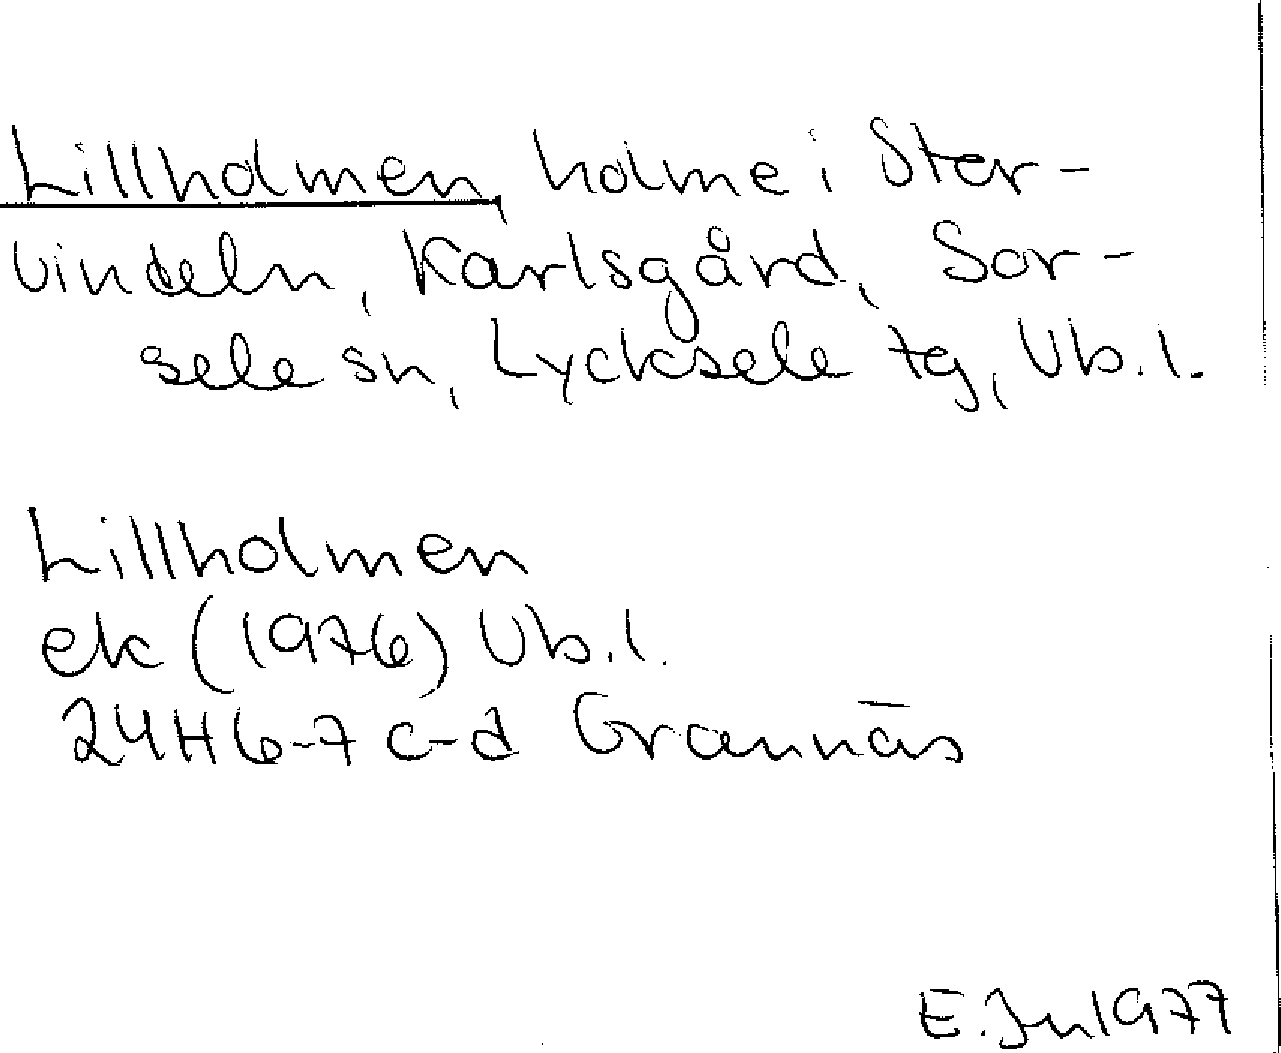 Lillholmen, holme i Stor-
vindeln, Karlsgård, Sor-
sele sn, Lycksele tg, Vb.l.
Lillholmen
ek (1976) Vb.l.
24H 6-7 c-d Grannäs
E. Jn 1977